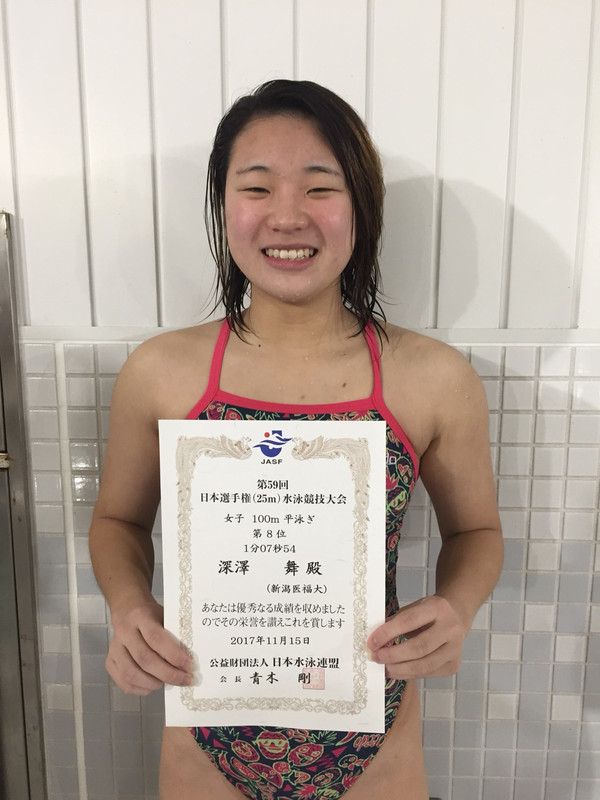 JASF
第59回
日本選手権(25m)水泳競技大会
女子 100m 平泳ぎ
第 8 位
1分07秒54
深澤 舞 殿
(新潟医福大)
あなたは優秀なる成績を収めました
のでその栄誉を讃えこれを賞します
2017年11月15日
公益財団法人 日本水泳連盟
会長 青木 剛